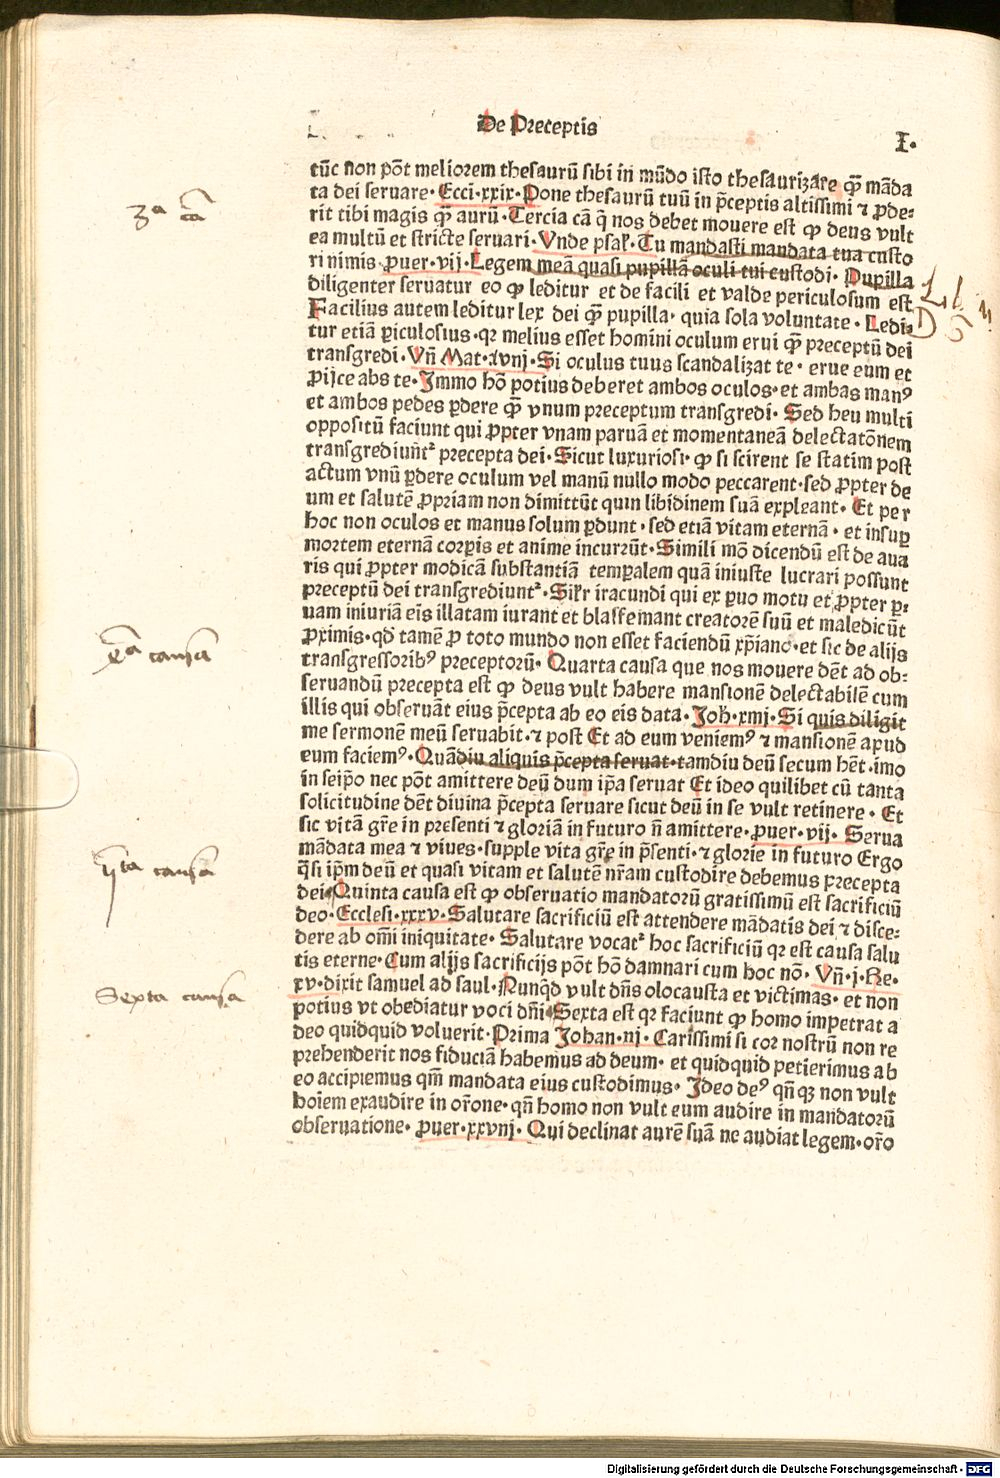 De Preceptis
I.
tūc non pōt meliorem thesaurū sibi in mūdo isto thesaurizare qꝫ māda
ta dei seruare. Ecci.xxix. Pone thesaurū tuū in p̄ceptis altissimi ⁊ ꝓde-
rit tibi magis qꝫ aurū. Tercia cā q̄ nos debet mouere est ꝙ deus vult
ea multū et stricte seruari. Vnde psaꝉ. Tu mandasti mandata tua custo
ri nimis. ꝓuer.vij. Legem meā quasi pupillā oculi tui custodi. Pupilla
diligenter seruatur eo ꝙ leditur et de facili et valde periculosum est
Facilius autem leditur lex dei qꝫ pupilla. quia sola voluntate. Ledi-
tur etiā ꝑiculosius. qr melius esset homini oculum erui qꝫ preceptū dei
transgredi. Vn̄ Mat.xvnj. Si oculus tuus scandalizat te. erue eum et
ꝓijce abs te. Immo hō potius deberet ambos oculos. et ambas manꝰ
et ambos pedes ꝑdere qꝫ vnum preceptum transgredi. Sed heu multi
oppositū faciunt qui ꝓpter vnam paruā et momentaneā delectatōnem
transgrediunt᷑ precepta dei. Sicut luxuriosi. ꝙ si scirent se statim post
actum vnū ꝑdere oculum vel manū nullo modo peccarent. sed ꝓpter de
um et salutē ꝓpriam non dimittūt quin libidinem suā expleant. Et per
hoc non oculos et manus solum ꝑdunt. sed etiā vitam eternā. et insuꝑ
mortem eternā corꝑis et anime incurrūt. Simili mō dicendū est de aua
ris qui ꝓpter modicā substantiā temꝑalem quā iniuste lucrari possunt
preceptū dei transgrediunt᷑. Siꝉr iracundi qui ex ꝑuo motu et ꝓpter ꝑ-
uam iniuriā eis illatam iurant et blasfemant creatorē suū et maledicūt
ꝓximis. qd tamē ꝓ toto mundo non esset faciendū xp̄iano. et sic de alijs
transgressoribꝰ preceptorū. Quarta causa que nos mouere dēt ad ob-
seruandū precepta est ꝙ deus vult habere mansionē delectabilē cum
illis qui obseruāt eius p̄cepta ab eo eis data. Joh̄.xmj. Si quis diligit
me sermonē meū seruabit. ⁊ post Et ad eum veniemꝰ ⁊ mansionē apud
eum faciemꝰ. Quādiu aliquis p̄cepta seruat. tamdiu deū secum hēt. imo
in seip̄o nec pōt amittere deū dum ip̄a seruat Et ideo quilibet cū tanta
solicitudine dēt diuina p̄cepta seruare sicut deū in se vult retinere. Et
sic vitā gr̄e in presenti ⁊ gloriā in futuro n̄ amittere. ꝓuer.vij. Serua
mādata mea ⁊ viues. supple vita gr̄e in p̄senti. ⁊ glorie in futuro Ergo
q̄si ip̄m deū et quasi vitam et salutē nr̄am custodire debemus precepta
dei. Quinta causa est ꝙ obseruatio mandatorū gratissimū est sacrificiū
deo. Ecclesi.xxxv. Salutare sacrificiū est attendere mādatis dei ⁊ disce-
dere ab om̄i iniquitate. Salutare vocat᷑ hoc sacrificiū qr est causa salu
tis eterne. Cum alijs sacrificijs pōt hō damnari cum hoc nō. Vn̄.j.Re.
xv. dixit samuel ad saul. Nunqd vult dn̄s olocausta et victimas. et non
potius vt obediatur voci dn̄i. Sexta est qr faciunt ꝙ homo impetrat a
deo quidquid voluerit. Prima Johan.nj. Carissimi si cor nostrū non re
prehenderit nos fiduciā habemus ad deum. et quidquid petierimus ab
eo accipiemus qm̄ mandata eius custodimus. Ideo deꝰ qn̄qꝫ non vult
hoiem exaudire in or̄one. qn̄ homo non vult eum audire in mandatorū
obseruatione. ꝓuer.xxvnj. Qui declinat aurē suā ne audiat legem. or̄o
3ª cā
4ª causa
vta causa
Sexta causa
Digitalisierung gefördert durch die Deutsche Forschungsgemeinschaft - DFG